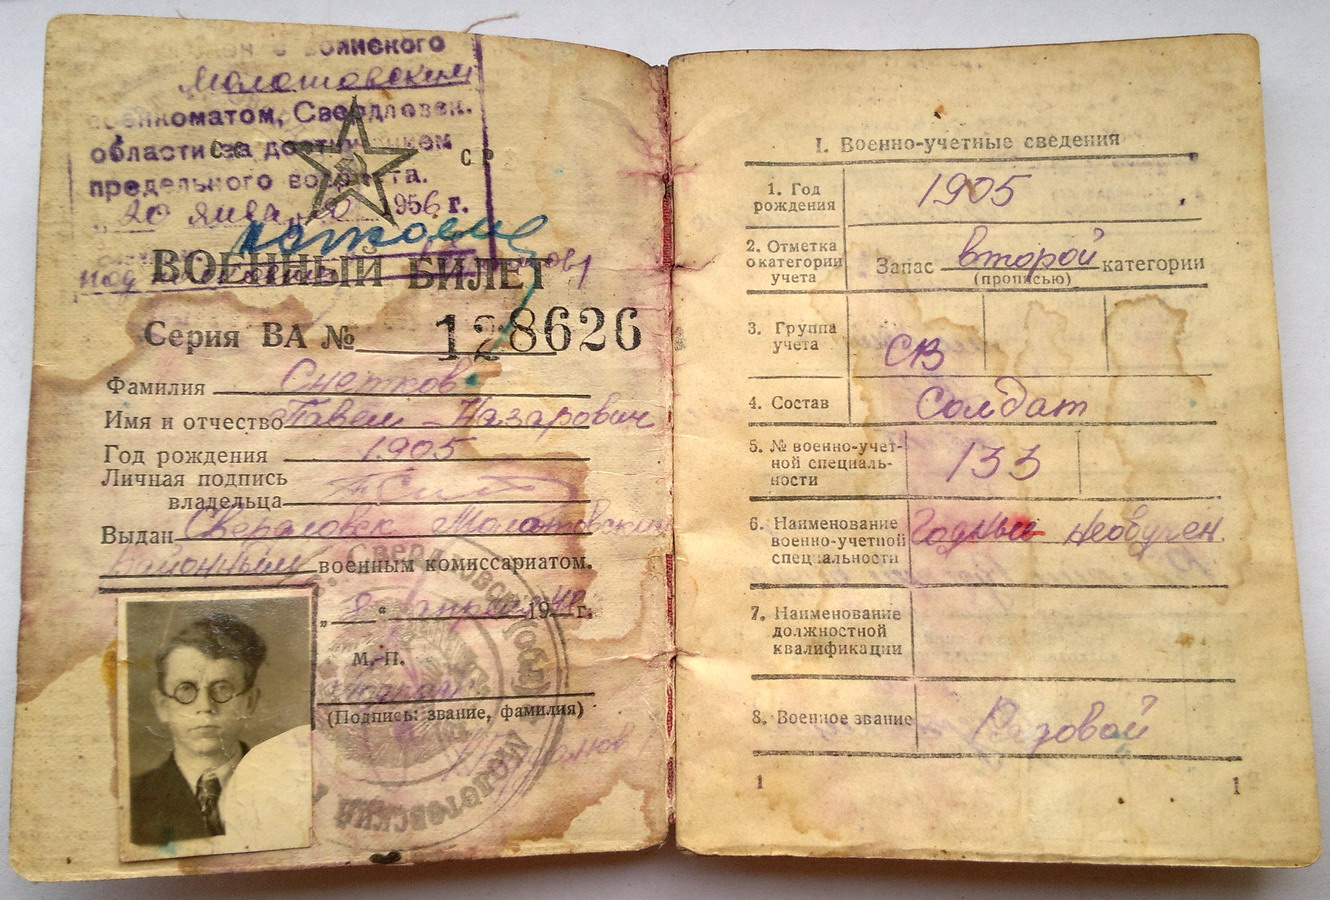 воинского
Молотовским
военкоматом, Свердловск.
области за достижением
предельного возраста.
„20 янва 1956 г.
СССР
ВОЕННЫЙ БИЛЕТ
Серия ВА № 128626
Фамилия Снетков
Имя и отчество Павел Назарович
Год рождения 1905
Личная подпись
владельца
Выдан Свердловск Молотовский
Районным военным комиссариатом.
„8“ апреля 1948 г.
М. П.
(Подпись: звание, фамилия)
Свердловск
Молотовский
I. Военно-учетные сведения
1. Год
рождения 1905
2. Отметка
о категории
учета Запас второй категории
(прописью)
3. Группа
учета СВ
4. Состав Солдат
5. № военно-учет-
ной специаль-
ности 133
6. Наименование
военно-учетной
специальности Годный Необучен.
7. Наименование
должностной
квалификации
8. Военное звание Рядовой
1 1